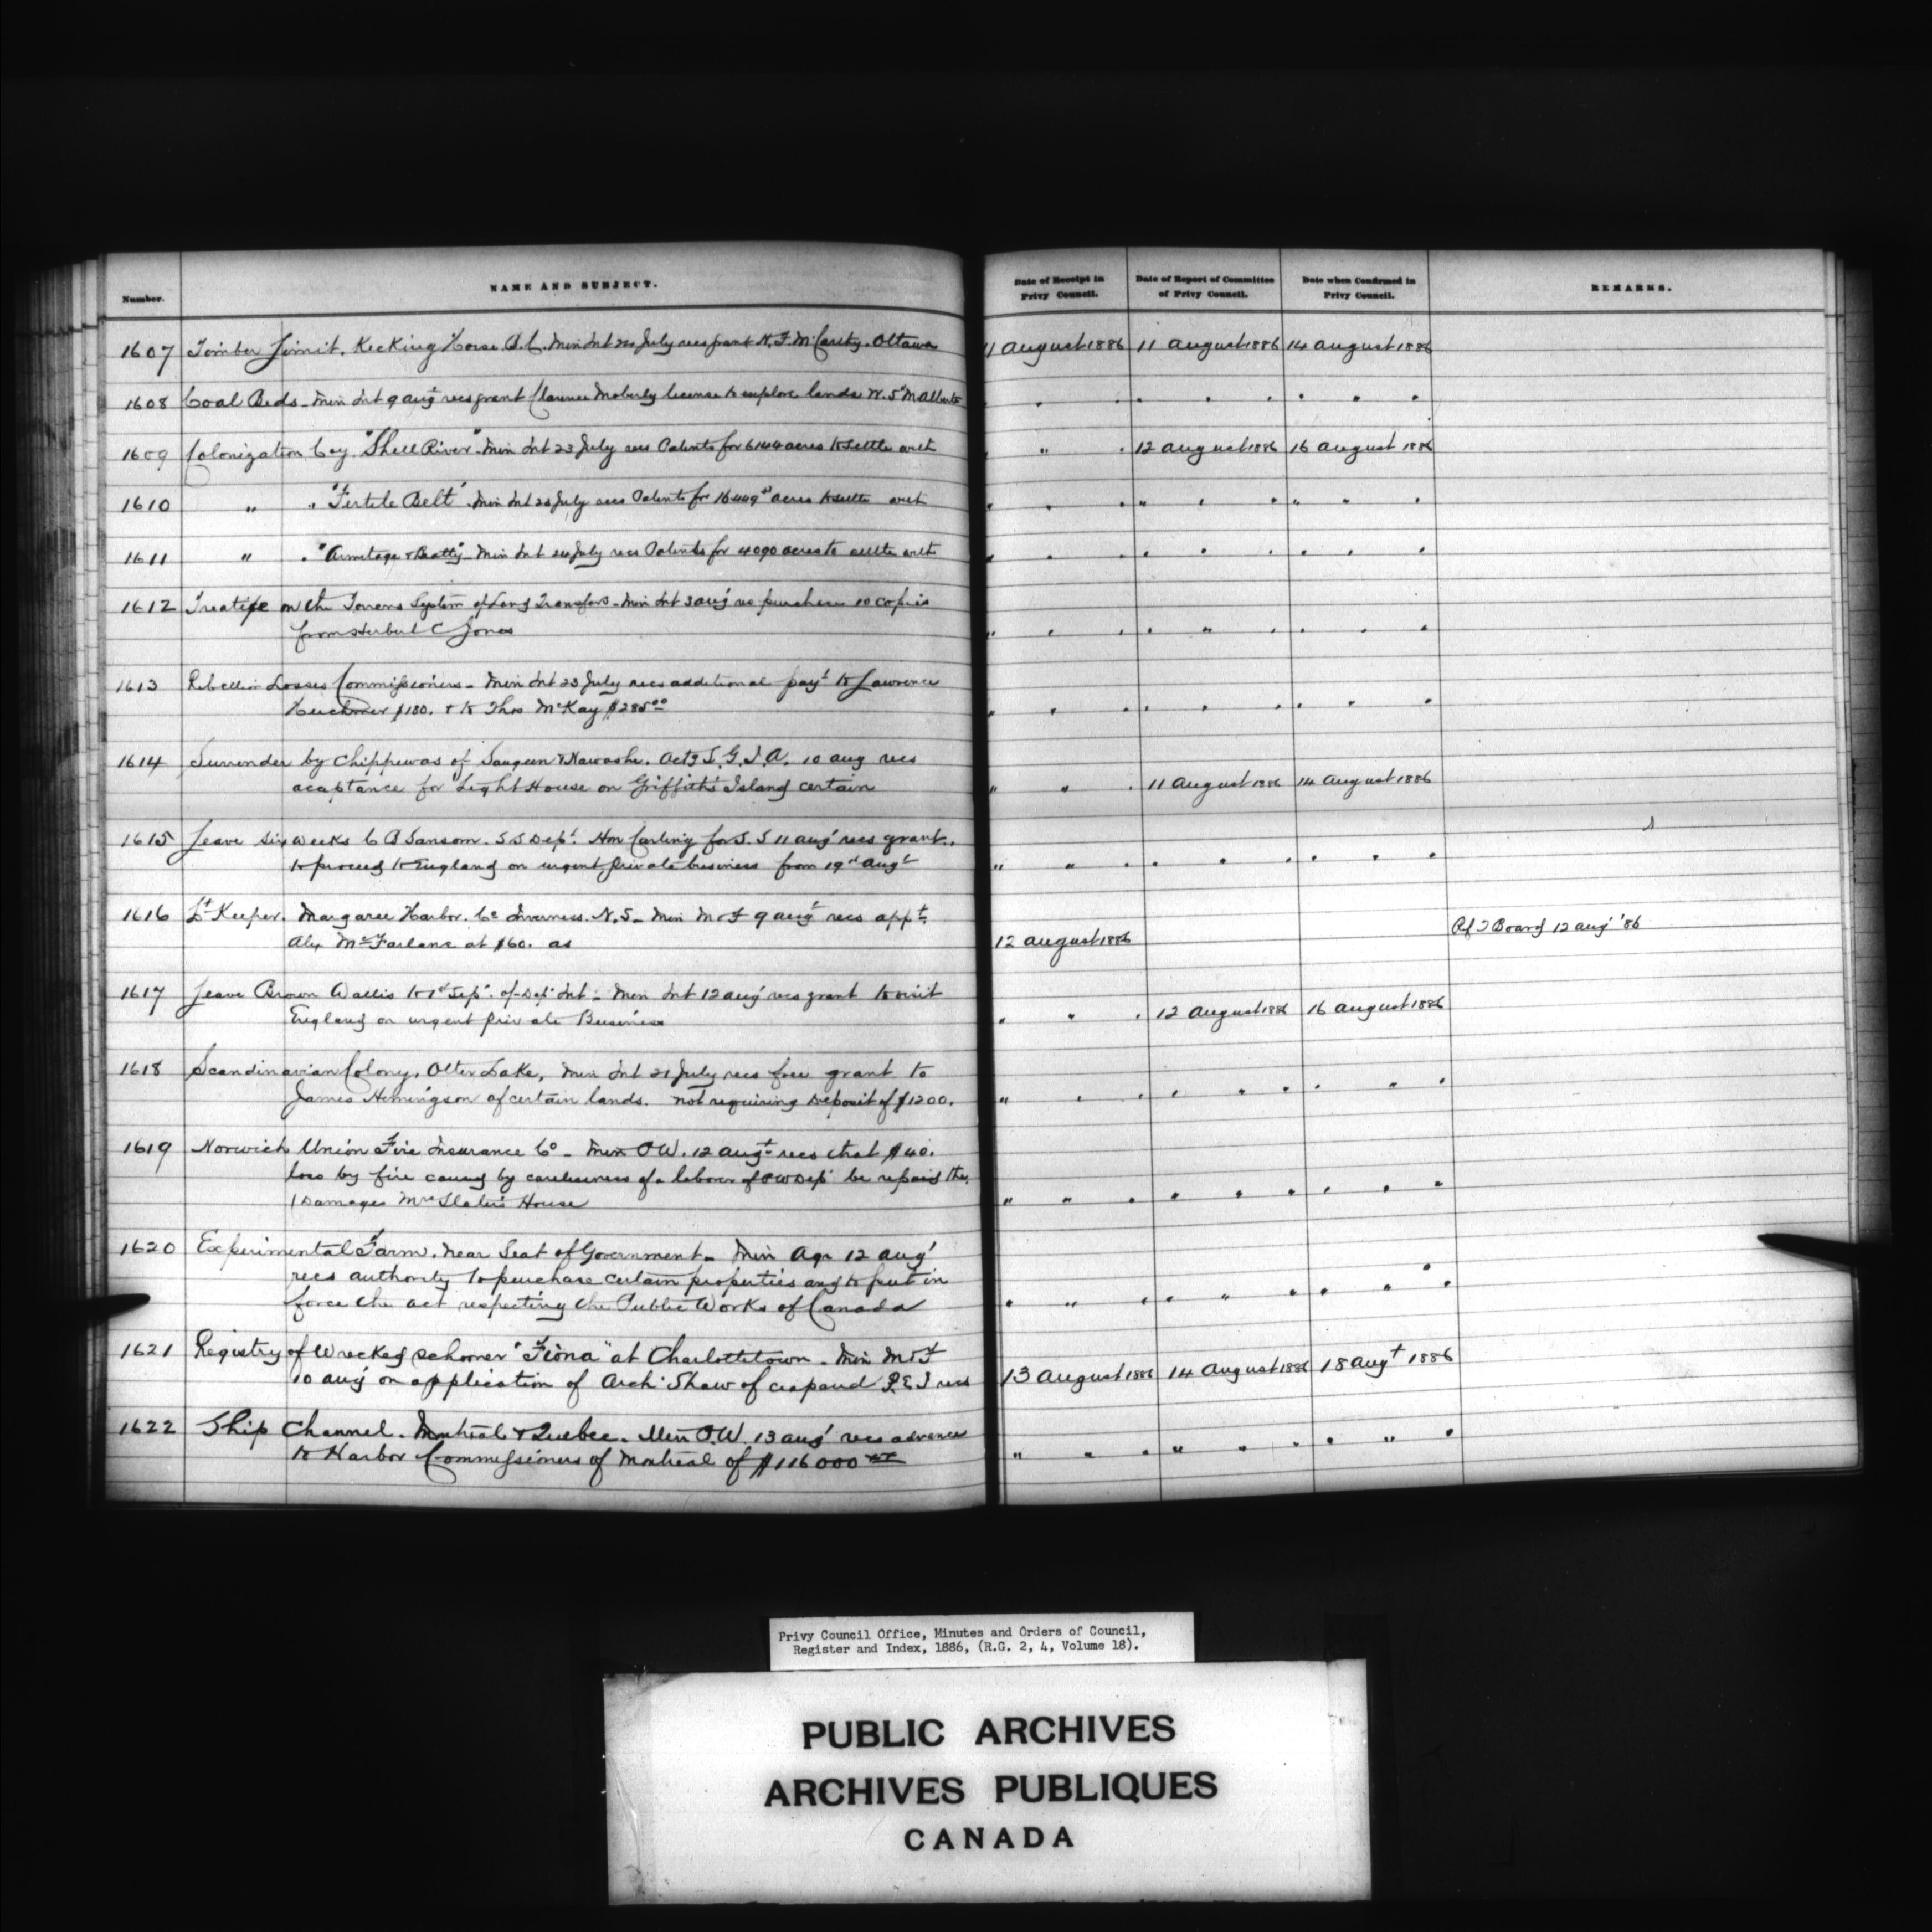 Number. NAME AND SUBJECT. Date of Receipt in Privy Council. Date of Report of Committee of Privy Council. Date when Confirmed in Privy Council. REMARKS.
1607 Timber Limit. Kicking Horse. B.C. Min Int 20 July recs grant N. F. McCarthy. Ottawa 11 August 1886 11 August 1886 14 August 1886
1608 Coal Beds - Min Int 9 Augt recs grant Clarence Moberly license to explore lands W. 5th M Alberta " " " " " " " " "
1609 Colonization Coy. "Shell River" Min Int 23 July recs Patents for 6144 acres to settle with " " " 12 August 1886 16 August 1886
1610 " " "Fertile Belt" Min Int 23 July recs Patents for 16449 acres to settle with " " " " " " " " "
1611 " " "Armitage & Beatty" Min Int 24 July recs Patents for 4090 acres to settle with " " " " " " " " "
1612 Treatise on the Torrens System of Land Transfers - Min Int 3 Augt re purchase 10 copies
from Herbert C Jones " " " " " " " " "
1613 Rebellion Losses Commissioners - Min Int 23 July recs additional payt to Lawrence
Herchmer $180. & to Thos McKay $285.00 " " " " " " " " "
1614 Surrender by Chippewas of Saugeen & Nawash. Actg S. G. I. A. 10 Aug recs
acaptance for Light House on Griffith's Island certain " " " 11 August 1886 14 August 1886
1615 Leave six weeks C B Sansom. S S Dept. Hon Carling for S. S 11 Augt recs grant.
to proceed to England on urgent private business from 19th Augt " " " " " " " " "
1616 Lt Keeper. Margaree Harbor. Co Inverness. N.S - Min M & F 9 Augt recs appt
Alex McFarlane at $60. as 12 August 1886 Ref T Board 12 Aug '86
1617 Leave Brown Wallis to 1st Sept. of Dept Int - Min Int 12 Augt recs grant to visit
England on urgent private Business " " " 12 August 1886 16 August 1886
1618 Scandinavian Colony, Otter Lake, Min Int 21 July recs free grant to
James Hemingson of certain lands. not requiring Deposit of $1200. " " " " " " " " "
1619 Norwich Union Fire Insurance Co - Min P W. 12 Augt recs that $40.
loss by fire caused by carelessness of a laborer of P W Dept be repaid the.
(Damages Mrs Slater's House " " " " " " " " "
1620 Experimental Farm. near Seat of Government - Min Agr 12 Augt
recs authority to purchase certain properties and to put in
force the act respecting the Public Works of Canada " " " " " " " " "
1621 Registry of Wrecked schooner "Fiona" at Charlottetown - Min M & F
10 Augt on application of Arch. Shaw of Crapaud P. E I recs 13 August 1886 14 August 1886 18 Augt 1886
1622 Ship Channel. Montreal & Quebec. Min P.W. 13 Augt recs advance
to Harbor Commissioners of Montreal of $116000 " " " " " " " " "
Privy Council Office, Minutes and Orders of Council,
Register and Index, 1886, (R.G. 2, 4, Volume 18).
PUBLIC ARCHIVES
ARCHIVES PUBLIQUES
CANADA